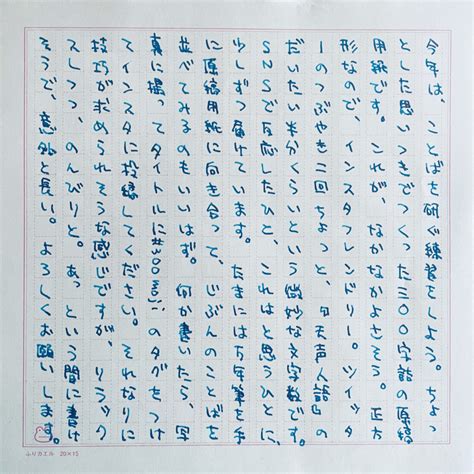 今年は、ことばを研ぐ練習をしよう。ちょっ
とした思いつきでつくった三〇〇字詰の原稿
用紙です。これが、なかなかよさそう。正方
形なので、インスタフレンドリー。ツイッタ
ーのつぶやき二回ちょっと、『天声人語』の
だいたい半分くらいという微妙な文字数です。
SNSで反応したひと、これはと思うひとに、
少しずつ届けています。たまには万年筆を手
に原稿用紙に向き合って、じぶんのことばを
並べてみるのもいいはず。何か書いたら、写
真に撮ってタイトルに#300字詰のタグをつけ
てインスタに投稿してください。それなりに
技巧が求められそうな感じですが、リラック
スしつつ、のんびりと。あっという間に書け
そうで、意外と長い。よろしくお願いします。
ふりカエル 20×15